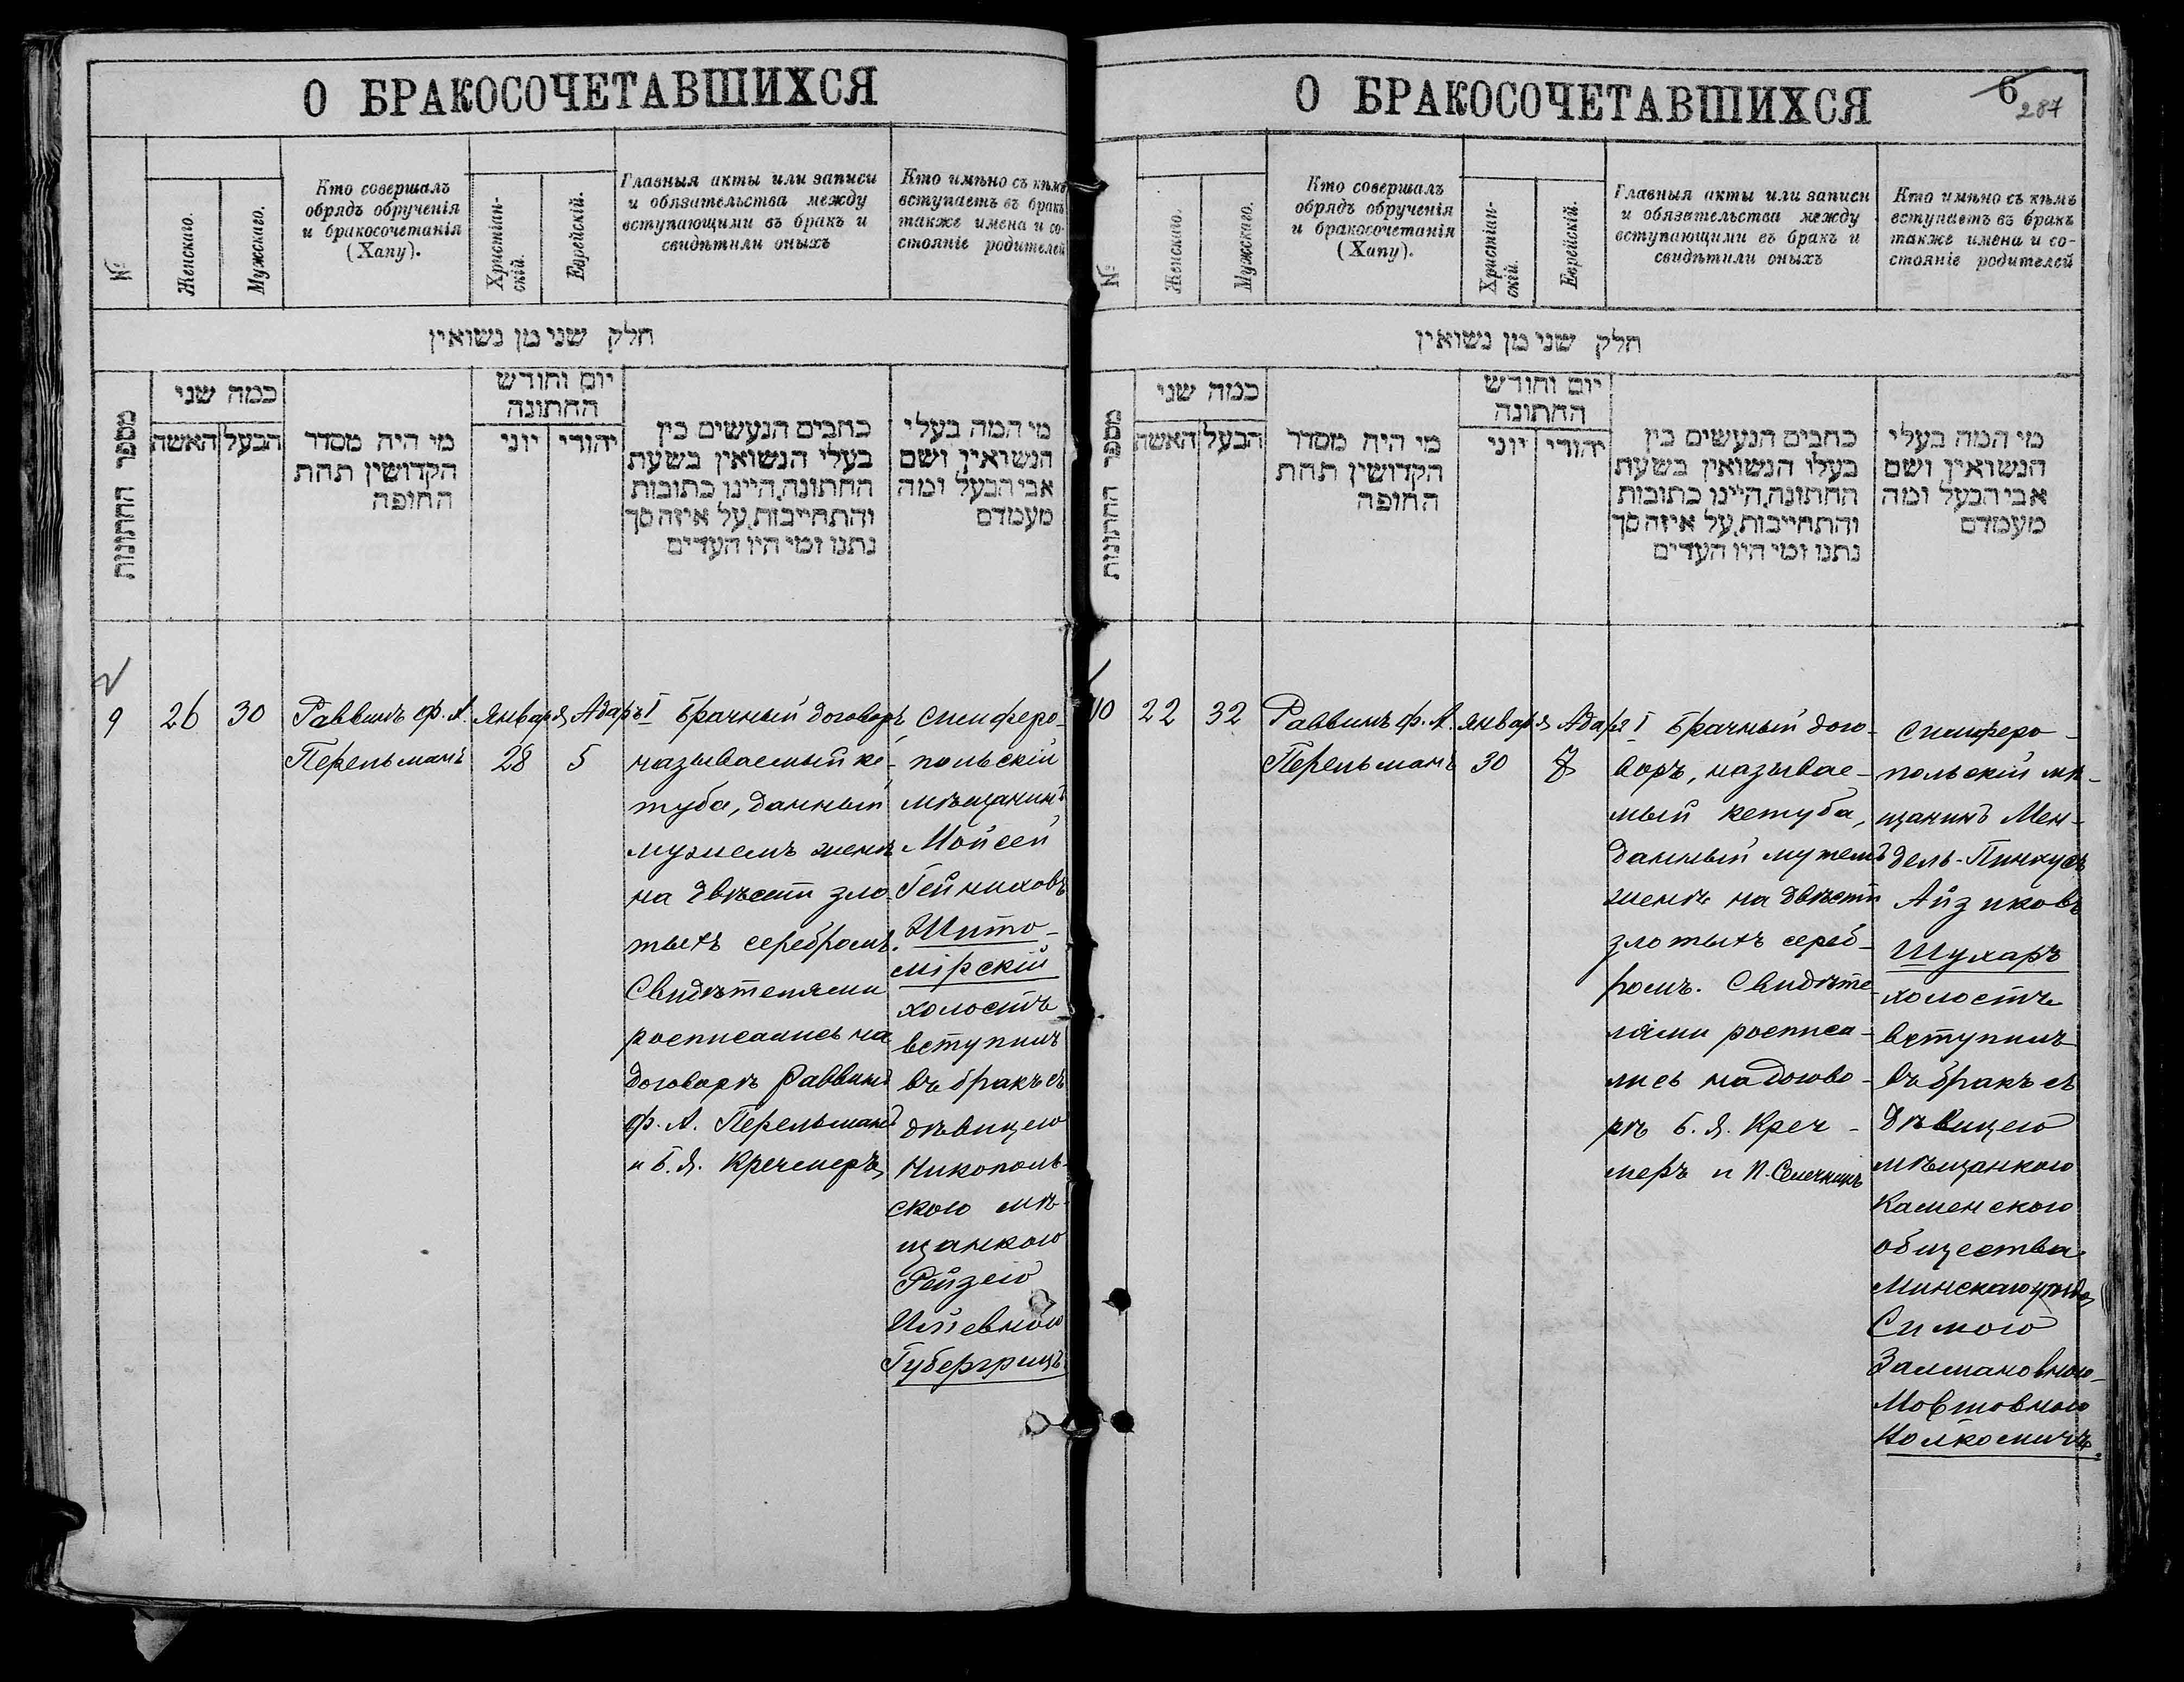 О БРАКОСОЧЕТАВШИХСЯ
№
Женскаго.
Мужскаго.
Кто совершалъ
обрядъ обрученія
и бракосочетанія
(Хапу).
Христіан-
скій.
Еврейскій.
Главныя акты или записи
и обязательства между
вступающими въ бракъ и
свидѣтили оныхъ
Кто имѣно съ кѣмъ
вступаетъ въ бракъ
также имена и со-
стояніе родителей
חלק שני מן נשואין
מספר החתונות
כמה שני
האשה
הבעל
מי היה מסדר
הקדושין תחת
החופה
יום וחודש
החתונה
יוני
יהודי
כחבים הנעשים בין
בעלי הנשואין בשעת
החתונה, היינו כתובות
והתחייבות, על איזה סך
נתנו ומי היו העדים
מי המה בעלי
הנשואין ושם
אבי הבעל ומה
מעמדם
9
26
30
Раввинъ Ф. А.
Перельманъ
Января
28
Адаръ I
5
Брачный договоръ,
называемый ке-
туба, данный
мужемъ женѣ
на двѣсти зло-
тыхъ серебромъ.
Свидѣтелями
росписались на
договорѣ Раввинъ
Ф. А. Перельманъ
и Б. Я. Кречмеръ
Симферо-
польскій
мѣщанинъ
Мойсей
Гейниховъ
Жито-
мірскій
холостъ
вступилъ
въ бракъ съ
дѣвицею
Никополь-
скою мѣ-
щанкою
Рейзею
Илiевною
Губергрицъ
О БРАКОСОЧЕТАВШИХСЯ
6
287
№
Женскаго.
Мужскаго.
Кто совершалъ
обрядъ обрученія
и бракосочетанія
(Хапу).
Христіан-
скій.
Еврейскій.
Главныя акты или записи
и обязательства между
вступающими въ бракъ и
свидѣтили оныхъ
Кто имѣно съ кѣмъ
вступаетъ въ бракъ
также имена и со-
стояніе родителей
חלק שני מן נשואין
מספר החתונות
כמה שני
האשה
הבעל
מי היה מסדר
הקדושין תחת
החופה
יום וחודש
החתונה
יוני
יהודי
כחבים הנעשים בין
בעלו הנשואין בשעת
החתונה, היינו כתובות
והתחייבות, על איזה סך
נתנו ומי היו העדים
מי המה בעלי
הנשואין ושם
אבי הבעל ומה
מעמדם
10
22
32
Раввинъ Ф. А.
Перельманъ
Января
30
Адаръ I
7
Брачный дого-
воръ, называе-
мый кетуба,
данный мужемъ
женѣ на двѣсти
злотыхъ сереб-
ромъ. Свидѣте-
лями росписа-
лись на догово-
рѣ Б. Я. Креч-
меръ и П.
Симферо-
польскій мѣ-
щанинъ Мен-
дель-Пинхусъ
Айзиковъ
Шухаръ
холостъ
вступилъ
въ бракъ съ
дѣвицею
мѣщанкою
Каменскаго
общества
Минскаго уѣзда
Симою
Залмановною-